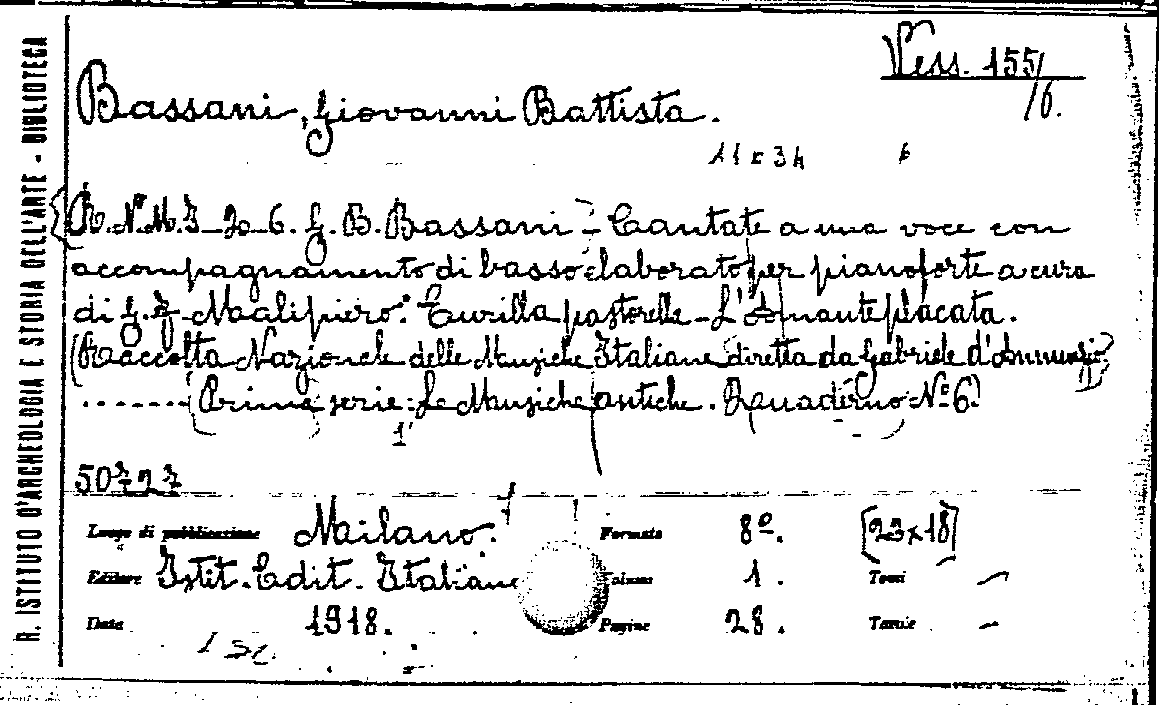 R. ISTITUTO D'ARCHEOLOGIA E STORIA DELL'ARTE - BIBLIOTECA
Vess. 155/
/6.
Bassani, Giovanni Battista.
R. N. M. I - 20 - 6. G. B. Bassani - Cantate a una voce con
accompagnamento di basso elaborato per pianoforte a cura
di G. F. Malipiero: Eurilla pastorella - L'Amante placata.
(Raccolta Nazionale delle Musiche Italiane diretta da Gabriele d'Annunzio)
.......(Prima serie: Le Musiche antiche. Quaderno Nº 6)
50727
Luogo di pubblicazione Milano. Formato 8º. [23x18]
Editore Istit. Edit. Italiano Volume 1. Tomi -
Data 1918. Pagine 28. Tavole -